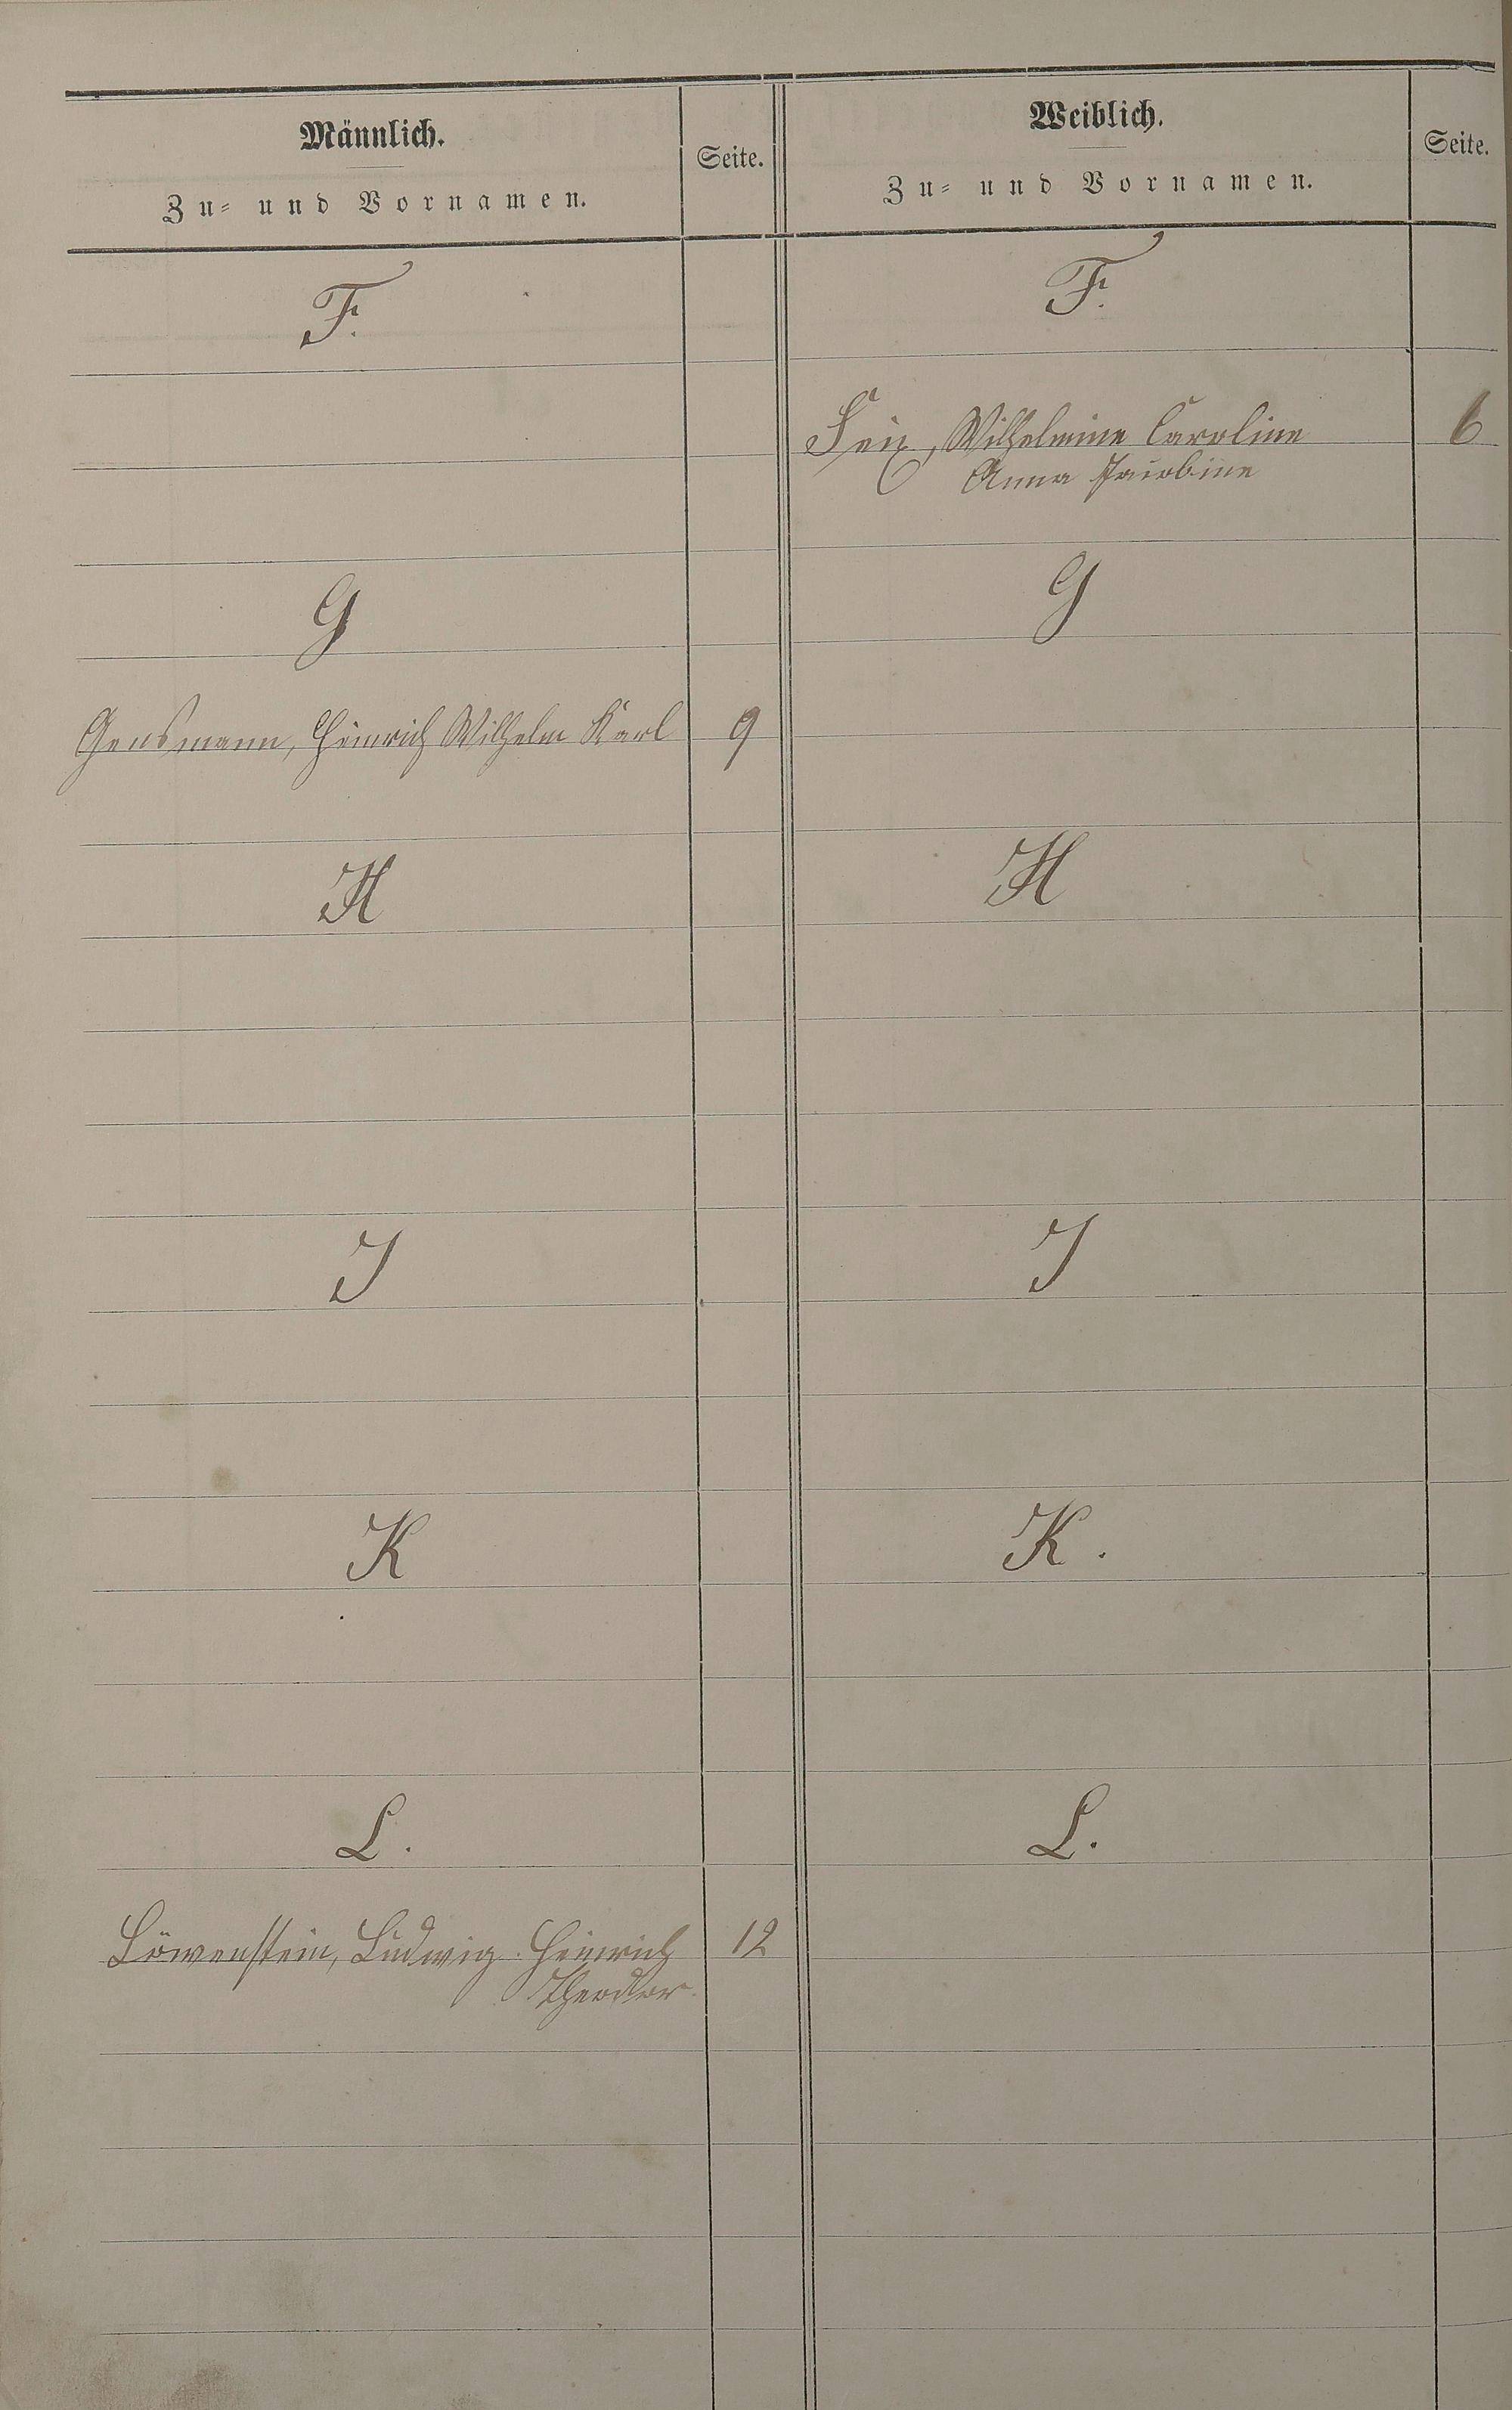 Männlich.
Zu= und Vornamen.
Seite.
Weiblich.
Zu= und Vornamen.
Seite.
F.
F.
Feix, Wilhelmine Caroline 6
Anna Jacobine
G
G
Gensmann, Heinrich Wilhelm Karl 9
H
H
J
J
K
K.
L.
L.
Löwenstein, Ludwig Heinrich 12
Theodor